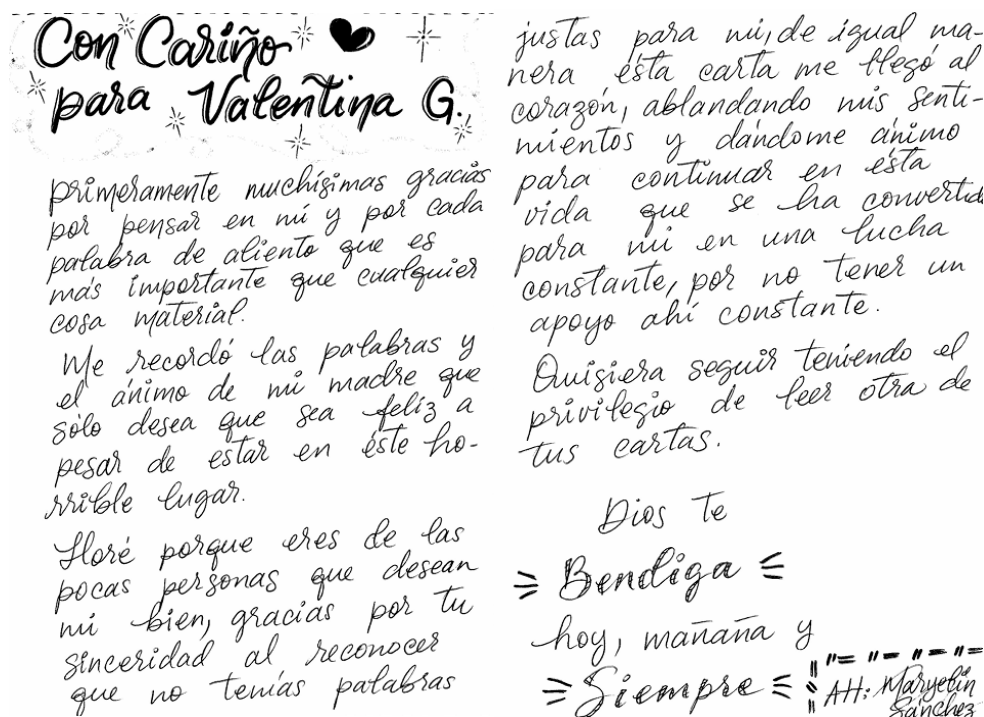 Con Cariño
para Valentina G.
primeramente muchísimas gracias
por pensar en mí y por cada
palabra de aliento que es
más importante que cualquier
cosa material.
Me recordó las palabras y
el ánimo de mi madre que
sólo desea que sea feliz a
pesar de estar en éste ho-
rrible lugar.
Lloré porque eres de las
pocas personas que desean
mi bien, gracias por tu
sinceridad al reconocer
que no tenías palabras
justas para mí, de igual ma-
nera ésta carta me llegó al
corazón, ablandando mis senti-
mientos y dándome ánimo
para continuar en ésta
vida que se ha convertido
para mí en una lucha
constante, por no tener un
apoyo ahí constante.
Quisiera seguir teniendo el
privilegio de leer otra de
tus cartas.
Dios te
Bendiga
hoy, mañana y
Siempre
AH: Maryelin
Sánchez